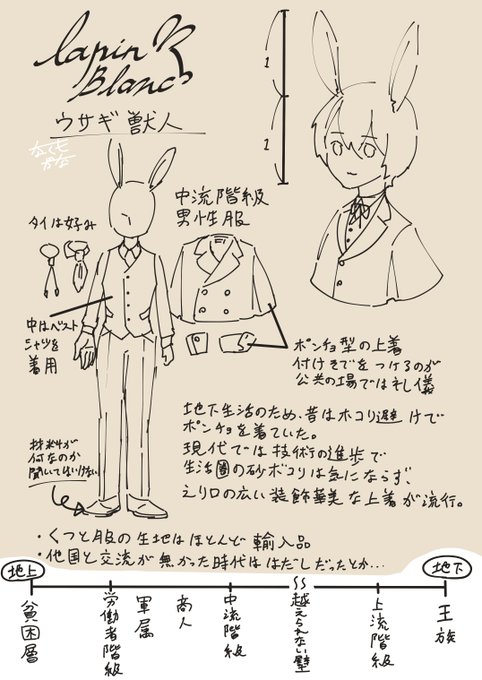 lapin
Blanc
ウサギ獣人
なくも
がな
1
1
タイは好み
中流階級
男性服
中はベスト
シャツを
着用
ポンチョ型の上着
付けそでをつけるのが
公共の場では礼儀
材料が
何なのか
聞いてはいけない
地下生活のため、昔はホコリ避けで
ポンチョを着ていた。
現代では技術の進歩で
生活圏の砂ボコリは気にならず、
えり口の広い装飾華美な上着が流行。
・くつと服の生地はほとんど輸入品
・他国と交流が無かった時代ははだしだったとか…
地上
地下
貧困層
労働者階級
軍属
商人
中流階級
越えられない壁
上流階級
王族